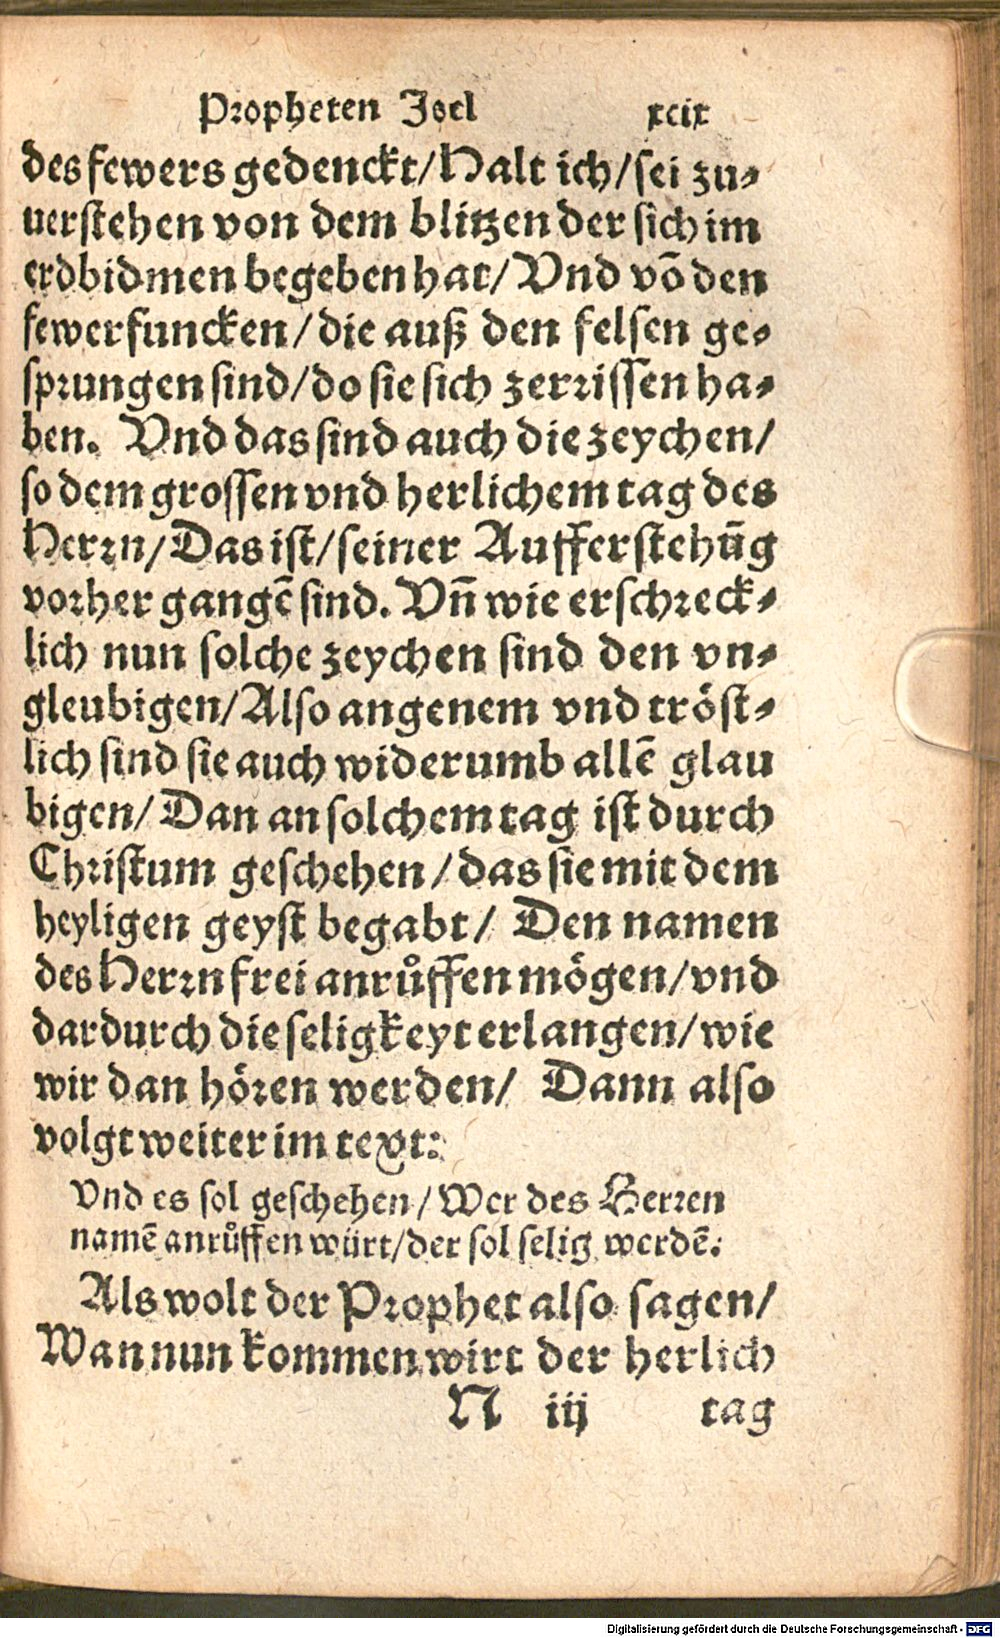 Propheten Joel xcix
des fewers gedenckt/Halt ich/sei zu-
uerstehen von dem blitzen der sich im
erdbidmen begeben hat/Vnd võ den
fewerfuncken/die auß den felsen ge-
sprungen sind/do sie sich zerrissen ha-
ben. Vnd das sind auch die zeychen/
so dem grossen vnd herlichem tag des
Herrn/Das ist/seiner Aufferstehũg
vorher gangẽ sind. Vñ wie erschreck-
lich nun solche zeychen sind den vn-
gleubigen/Also angenem vnd tröst-
lich sind sie auch widerumb allẽ glau
bigen/Dan an solchem tag ist durch
Christum geschehen/das sie mit dem
heyligen geyst begabt/ Den namen
des Herrn frei anrůffen mögen/vnd
dardurch die seligkeyt erlangen/wie
wir dan hören werden/ Dann also
volgt weiter im text:
Vnd es sol geschehen/Wer des Herren
namẽ anrůffen würt/der sol selig werdẽ.
Als wolt der Prophet also sagen/
Wan nun kommen wirt der herlich
N iij tag
Digitalisierung gefördert durch die Deutsche Forschungsgemeinschaft - DFG